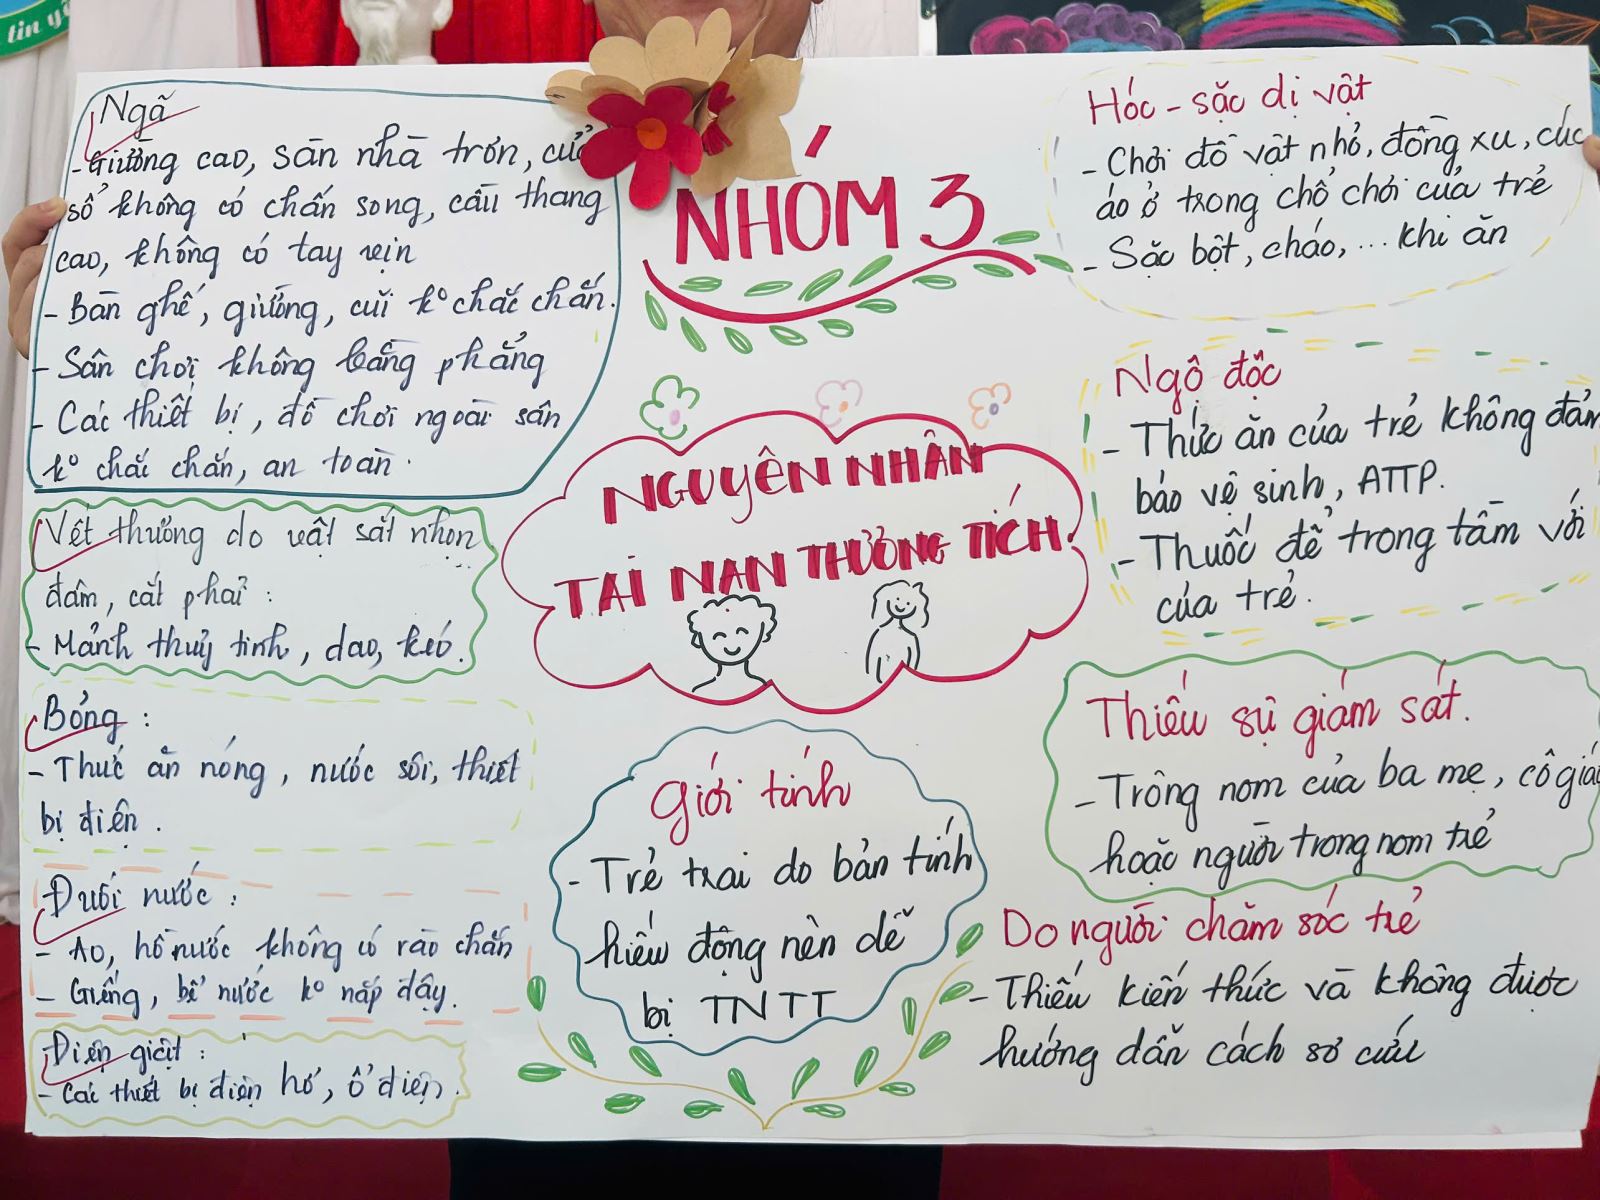 tin yê
Ngã
- Giường cao, sàn nhà trơn, cửa
sổ không có chấn song, cầu thang
cao, không có tay vịn
- Bàn ghế, giường, cũi ko chắc chắn.
- Sân chơi không bằng phẳng
- Các thiết bị, đồ chơi ngoài sân
ko chắc chắn, an toàn.
Vết thương do vật sắt nhọn
đâm, cắt phải :
- Mảnh thuỷ tinh, dao, kéo.
Bỏng :
- Thức ăn nóng, nước sôi, thiết
bị điện.
Đuối nước :
- Ao, hồ nước không có rào chắn
- Giếng, bể nước ko nắp đậy.
Điện giật :
- Các thiết bị điện hở, ổ điện.
NHÓM 3
NGUYÊN NHÂN
TAI NAN THƯƠNG TÍCH.
Giới tính
- Trẻ trai do bản tính
hiếu động nên dễ
bị TNTT
Hóc - sặc dị vật
- Chơi đồ vật nhỏ, đồng xu, cúc
áo ở trong chỗ chơi của trẻ
- Sặc bột, cháo, ... khi ăn
Ngộ độc
- Thức ăn của trẻ không đảm
bảo vệ sinh, ATTP.
- Thuốc để trong tầm với
của trẻ.
Thiếu sự giám sát.
- Trông nom của ba mẹ, cô giáo
hoặc người trong nom trẻ
Do người chăm sóc trẻ
- Thiếu kiến thức và không được
hướng dẫn cách sơ cứu